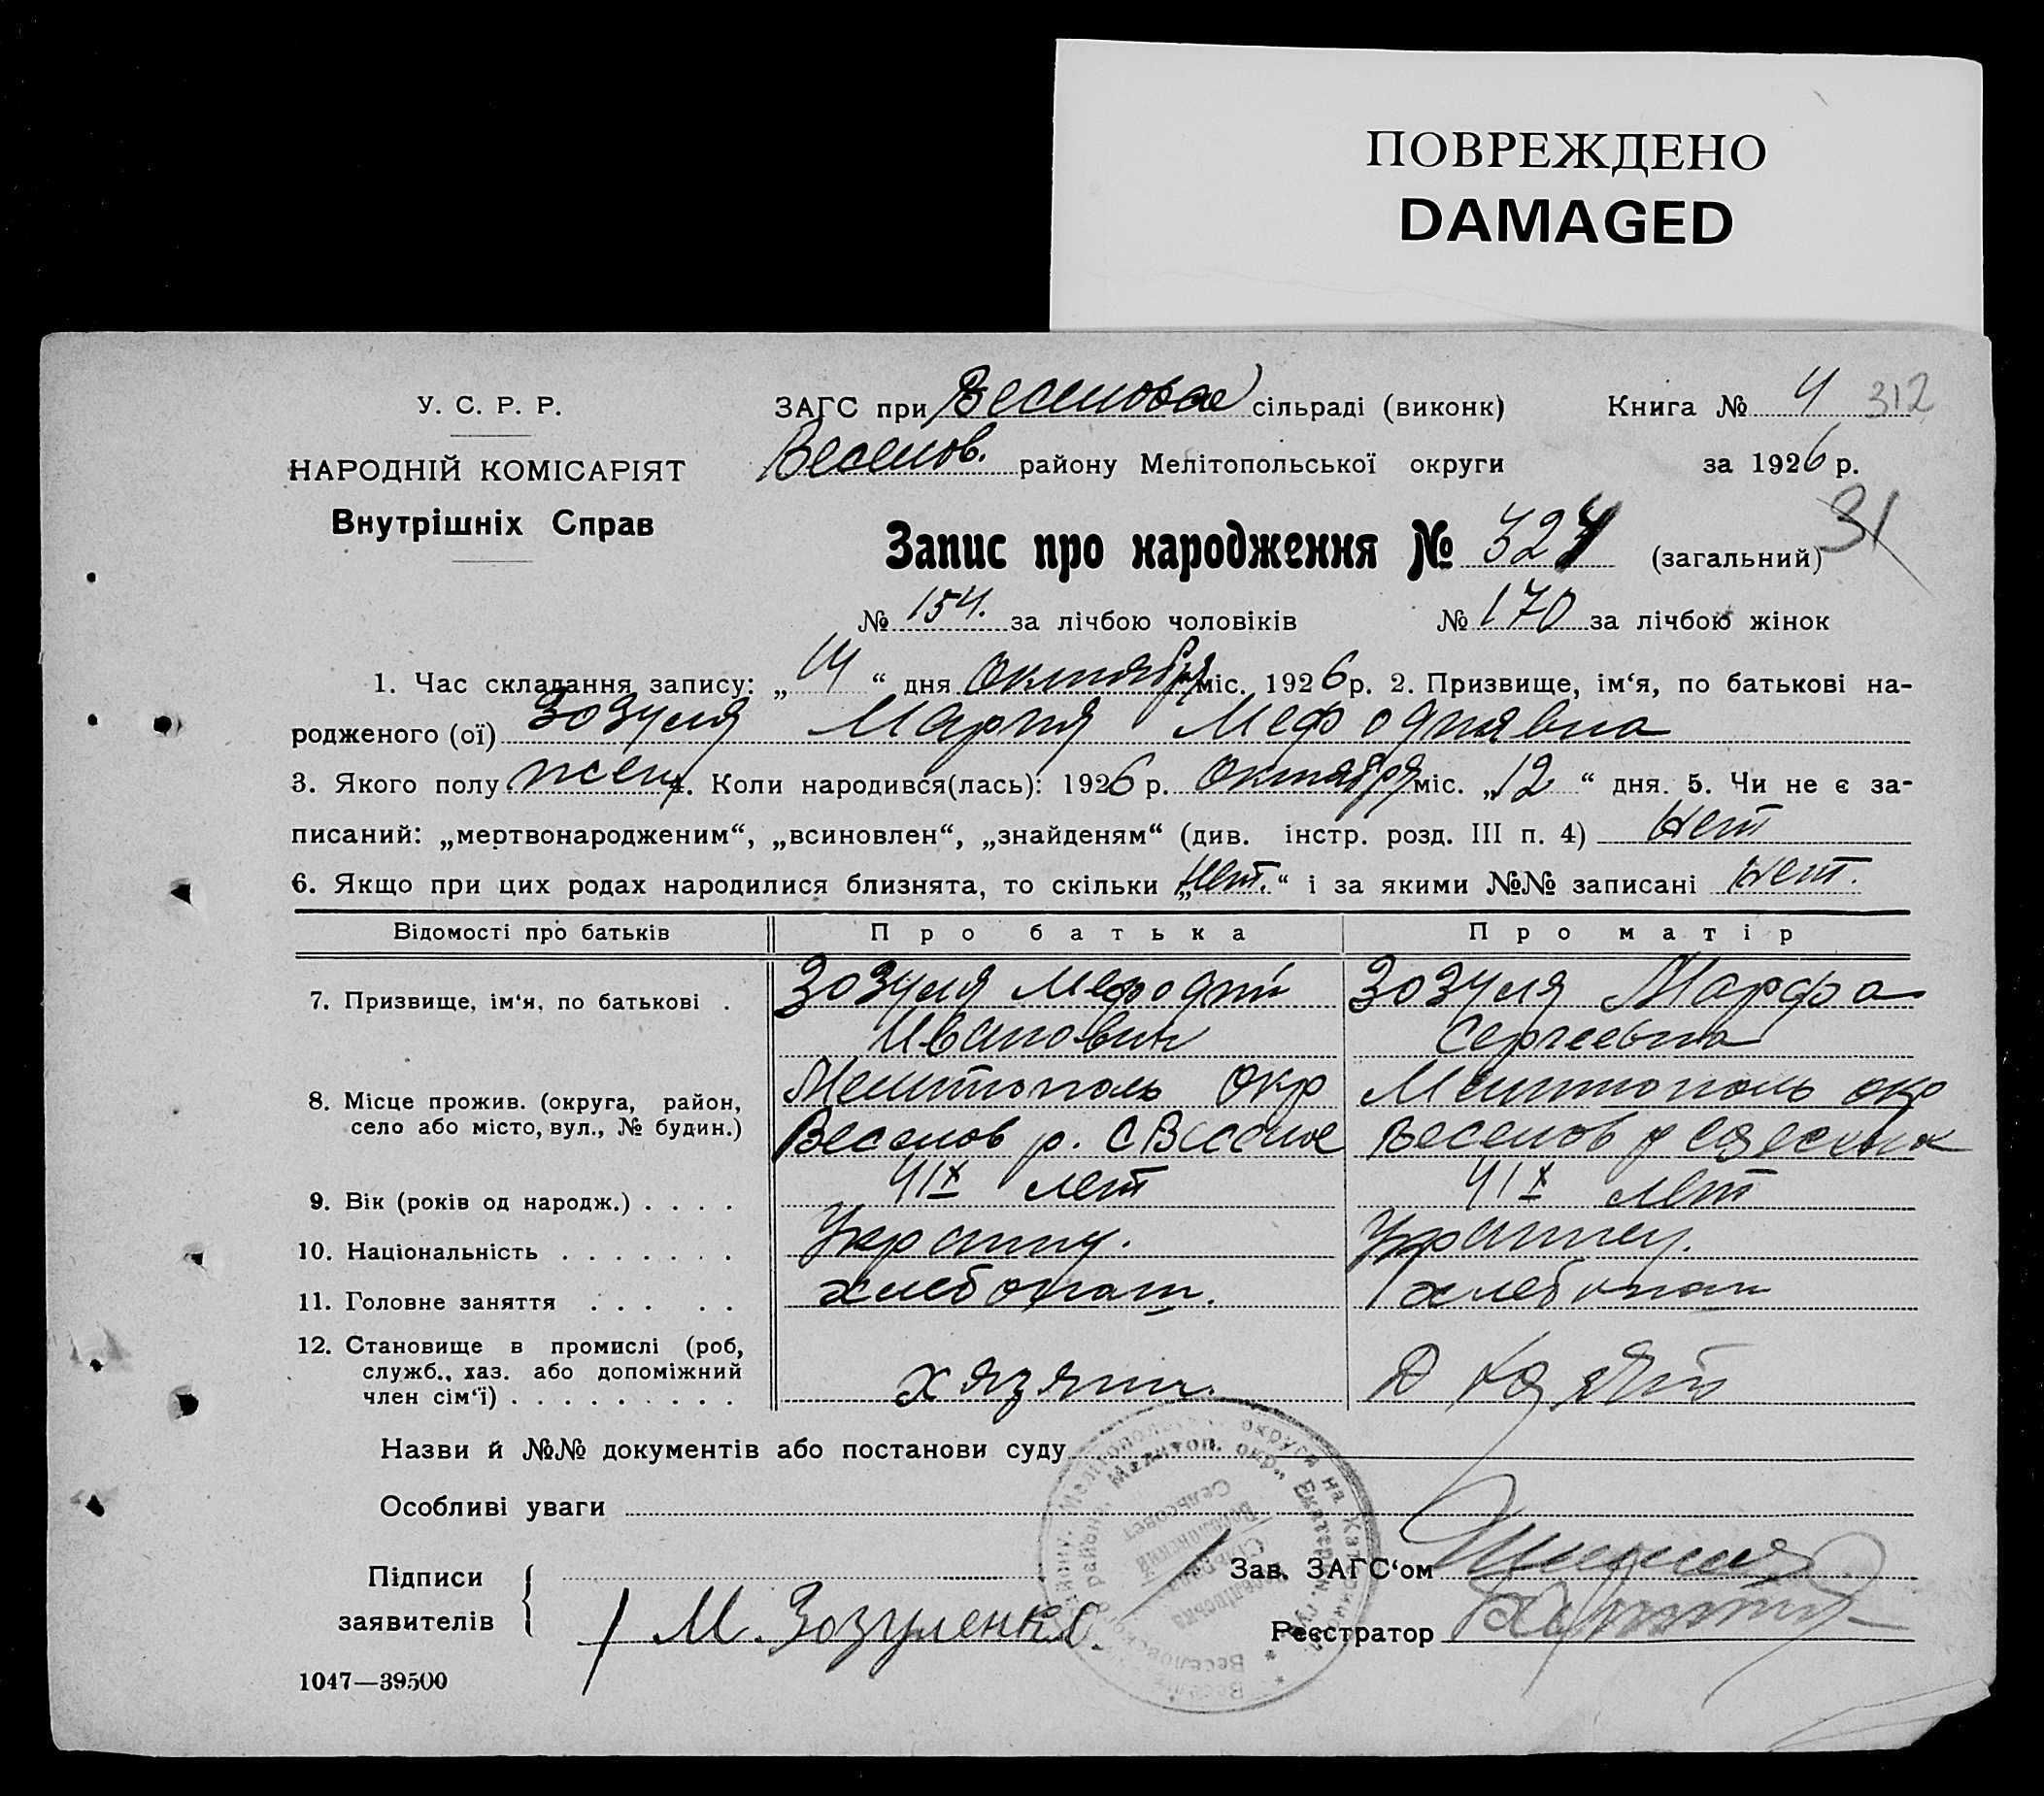 ПОВРЕЖДЕНО
DAMAGED
У. С. Р. Р.
НАРОДНІЙ КОМІСАРІЯТ
Внутрішніх Справ
ЗАГС при Веселовое сільраді (виконк) Книга № 4 312
Веселов. району Мелітопольської округи за 1926 р.
31
Запис про народження № 324 (загальний)
№ 154. за лічбою чоловіків № 170 за лічбою жінок
1. Час складання запису: „14“ дня Октября міс. 1926 р. 2. Призвище, ім‘я, по батькові на-
родженого (ої) Зозуля Мария Мефодиявна
3. Якого полу женс 4. Коли народився(лась): 1926 р. Октября міс. „12“ дня. 5. Чи не є за-
писаний: „мертвонародженим“, „всиновлен“, „знайденям“ (див. інстр. розд. III п. 4) Нет
6. Якщо при цих родах народилися близнята, то скільки „Нет.“ і за якими №№ записані Нет.
Відомості про батьків Про батька Про матір
7. Призвище, ім‘я, по батькові . Зозуля Мефодий Зозуля Марфа
Иванович Сергеевна
8. Місце прожив. (округа, район, Мелитополь Окр Мелитополь окр
село або місто, вул., № будин.) Веселов р. с Веселое Веселов р с Веселое
9. Вік (років од народж.) . . . . 41х лет 41х лет
10. Національність . . . . . . . Украинц. Украинец.
11. Головне заняття . . . . . хлебопаш. хлебопаш
12. Становище в промислі (роб,
служб., хаз. або допоміжний
член сім‘ї) . . . . . . . . . хязяин.
Назви й №№ документів або постанови суду
Особливі уваги
Підписи
заявителів
М. Зозуленко.
Зав. ЗАГС‘ом
Реєстратор
1047—39500
Мелитоп. окр., Екатерин. губ.
Сельсовет